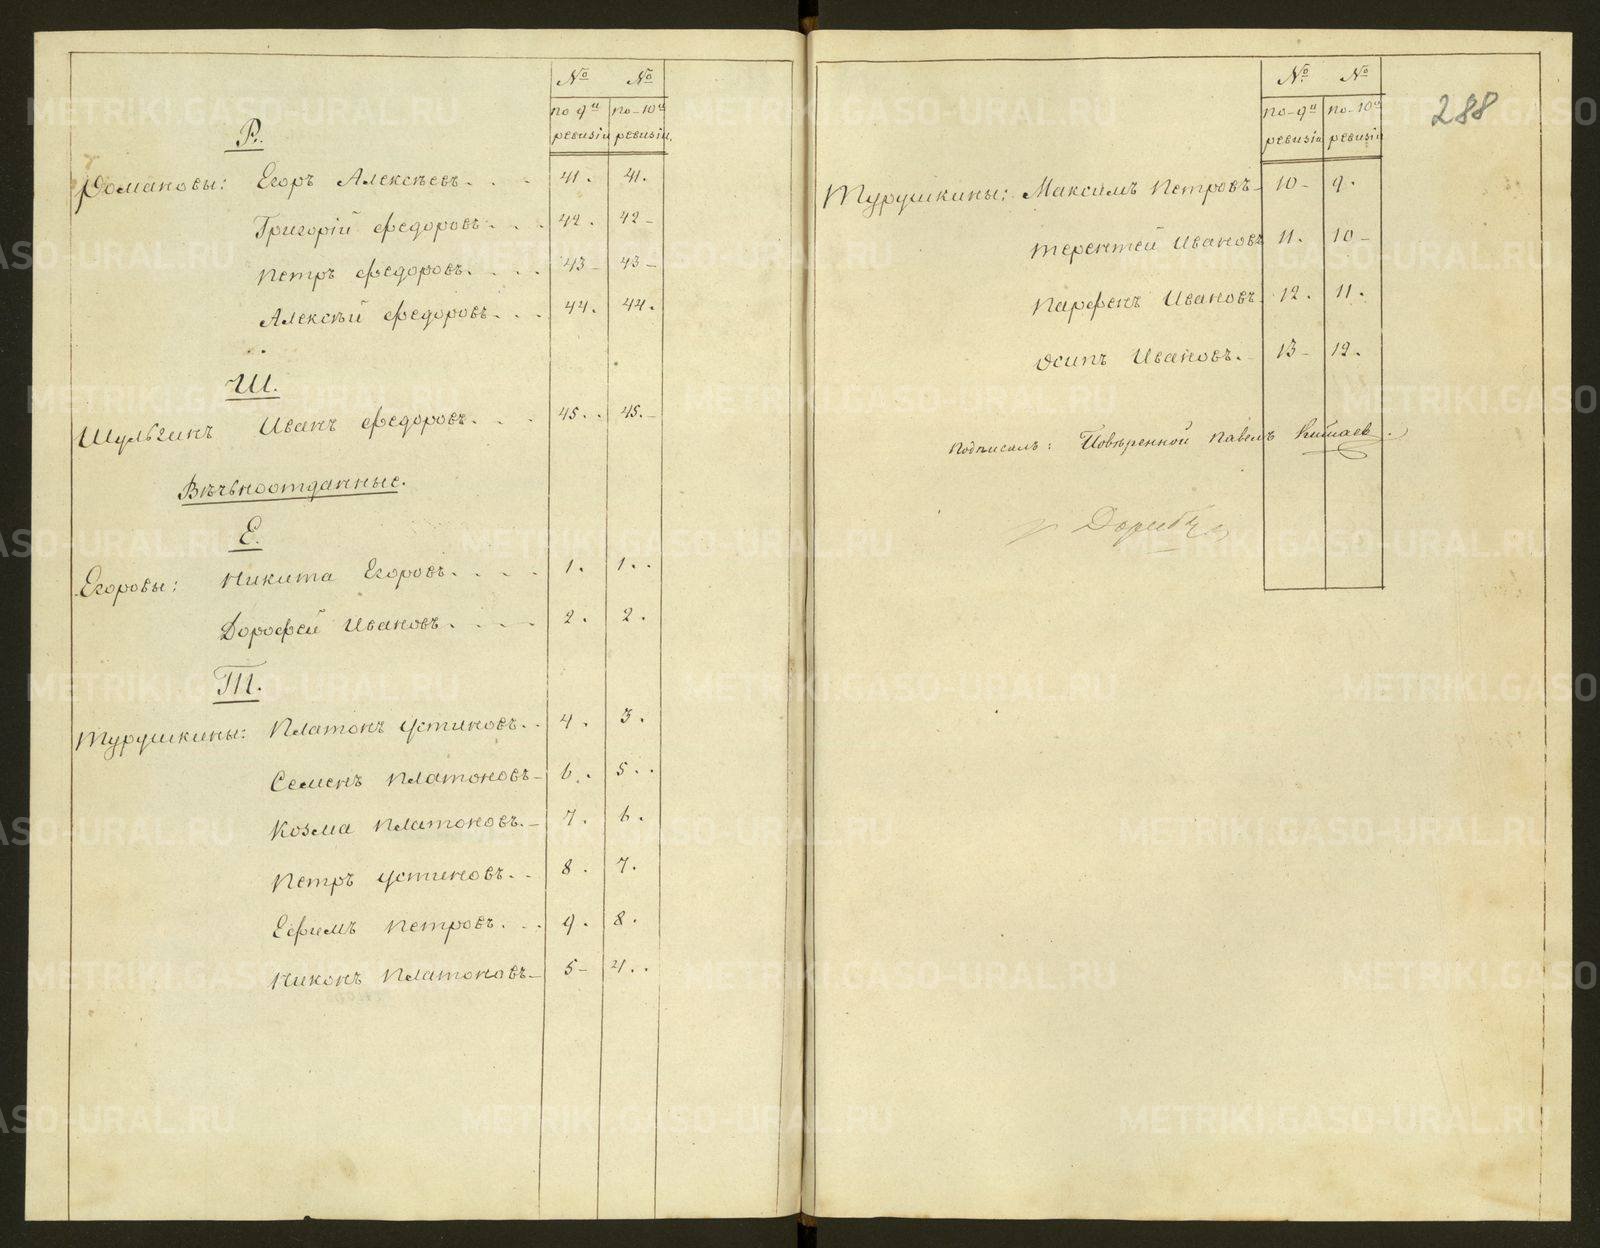 № №
по 9й по-10й
ревизiи ревизiи.
Р.
Романовы: Егоръ Алексѣевъ. . . 41. 41.
Григорiй Федоровъ. . . 42. 42-
Петръ Федоровъ. . . . 43- 43-
Алексѣй Федоровъ. . . 44. 44.
Ш.
Шульгинъ Иванъ Федоровъ. . . 45. . 45.-
Вѣчьноотданные.
Е.
Егоровы: Никита Егоровъ. . . . 1. 1. .
Дорофей Ивановъ. . . . 2. 2.
Т.
Турушкины: Платонъ Устиновъ. . 4. 3.
Семенъ Платоновъ- 6. . 5. .
Козма Платоновъ.- 7. 6.
Петръ Устиновъ. . 8. 7.
Ефимъ Петровъ. . . 9. 8.
Никонъ Платоновъ- 5- 4. .
№ № 288
по-9й по-10й
ревизiи ревизiи
Турушкины: Максимъ Петровъ- 10- 9.
Терентей Ивановъ 11. 10-
Парфенъ Ивановъ- 12. 11.
Осипъ Ивановъ. 13- 12.
Подписалъ: Повѣренной Павелъ Китаев.
METRIKI.GASO-URAL.RU